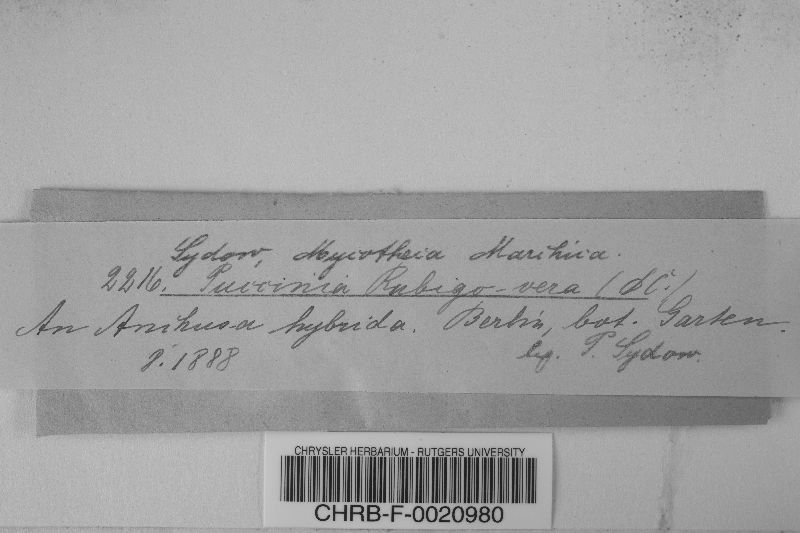 Sydow, Mycotheca Marchica.
2216. Puccinia Rubigo-vera (DC.)
An Anchusa hybrida. Berlin, bot. Garten.
8. 1888 leg. P. Sydow.
CHRYSLER HERBARIUM - RUTGERS UNIVERSITY
CHRB-F-0020980